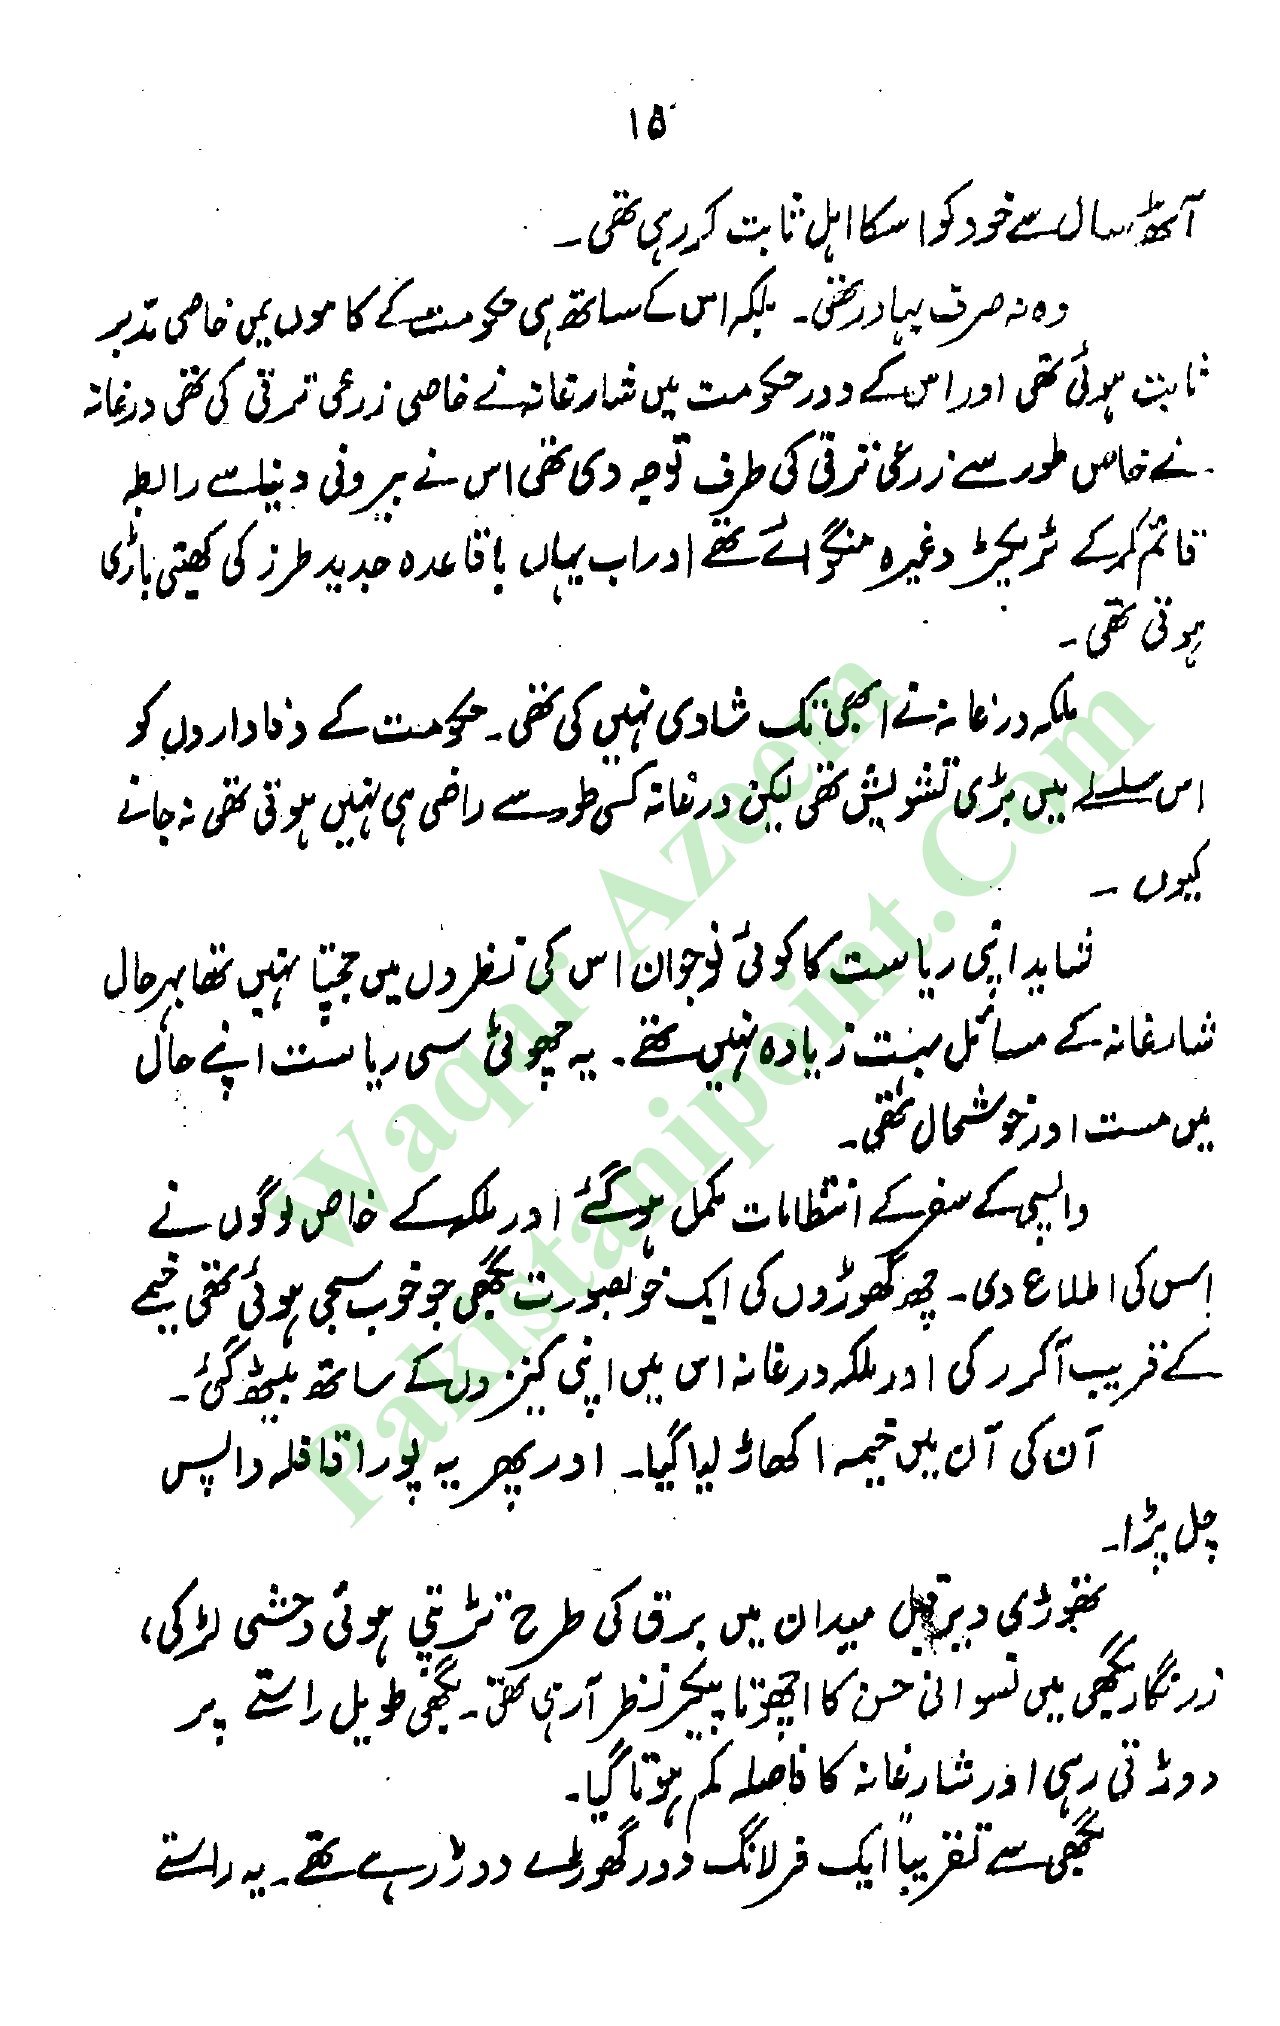 ۱۵
آٹھ سال سے خود کو اسکا اہل ثابت کر رہی تھی۔
وہ نہ صرف بہادر تھی۔ بلکہ اس کے ساتھ ہی حکومت کے کاموں میں خاصی مدّبر
ثابت ہوئی تھی اور اس کے دور حکومت میں شارغانہ نے خاصی زرعی ترقی کی تھی درغانہ
نے خاص طور سے زرعی ترقی کی طرف توجہ دی تھی اس نے بیرونی دنیا سے رابطہ
قائم کر کے ٹریکٹر وغیرہ منگوائے تھے اور اب یہاں باقاعدہ جدید طرز کی کھیتی باڑی
ہوتی تھی۔
ملکہ درغانہ نے ابھی تک شادی نہیں کی تھی۔ حکومت کے وفاداروں کو
اس سلسلے میں بڑی تشویش تھی لیکن درغانہ کسی طور سے راضی ہی نہیں ہوتی تھی نہ جانے
کیوں ۔
شاید اپنی ریاست کا کوئی نوجوان اس کی نظروں میں جچتا نہیں تھا بہرحال
شارغانہ کے مسائل بہت زیادہ نہیں تھے۔ یہ چھوٹی سی ریاست اپنے حال
میں مست اور خوشحال تھی۔
واپسی کے سفر کے انتظامات مکمل ہو گئے اور ملکہ کے خاص لوگوں نے
اس کی اطلاع دی۔ چھ گھوڑوں کی ایک خوبصورت بگھی جو خوب سجی ہوئی تھی خیمے
کے قریب آکر رکی اور ملکہ درغانہ اس میں اپنی کنیزوں کے ساتھ بیٹھ گئی۔
آن کی آن میں خیمہ اکھاڑ لیا گیا۔ اور پھر یہ پورا قافلہ واپس
چل پڑا۔
تھوڑی دیر قبل میدان میں برق کی طرح تڑپتی ہوئی وحشی لڑکی،
زرنگار بگھی میں نسوانی حسن کا اچھوتا پیکر نظر آرہی تھی۔ بگھی طویل راستے پر
دوڑتی رہی اور شارغانہ کا فاصلہ کم ہوتا گیا۔
بگھی سے تقریباً ایک فرلانگ دور گھوڑے دوڑ رہے تھے۔ یہ راستے
Waqar Azeem
Pakistanipoint.Com